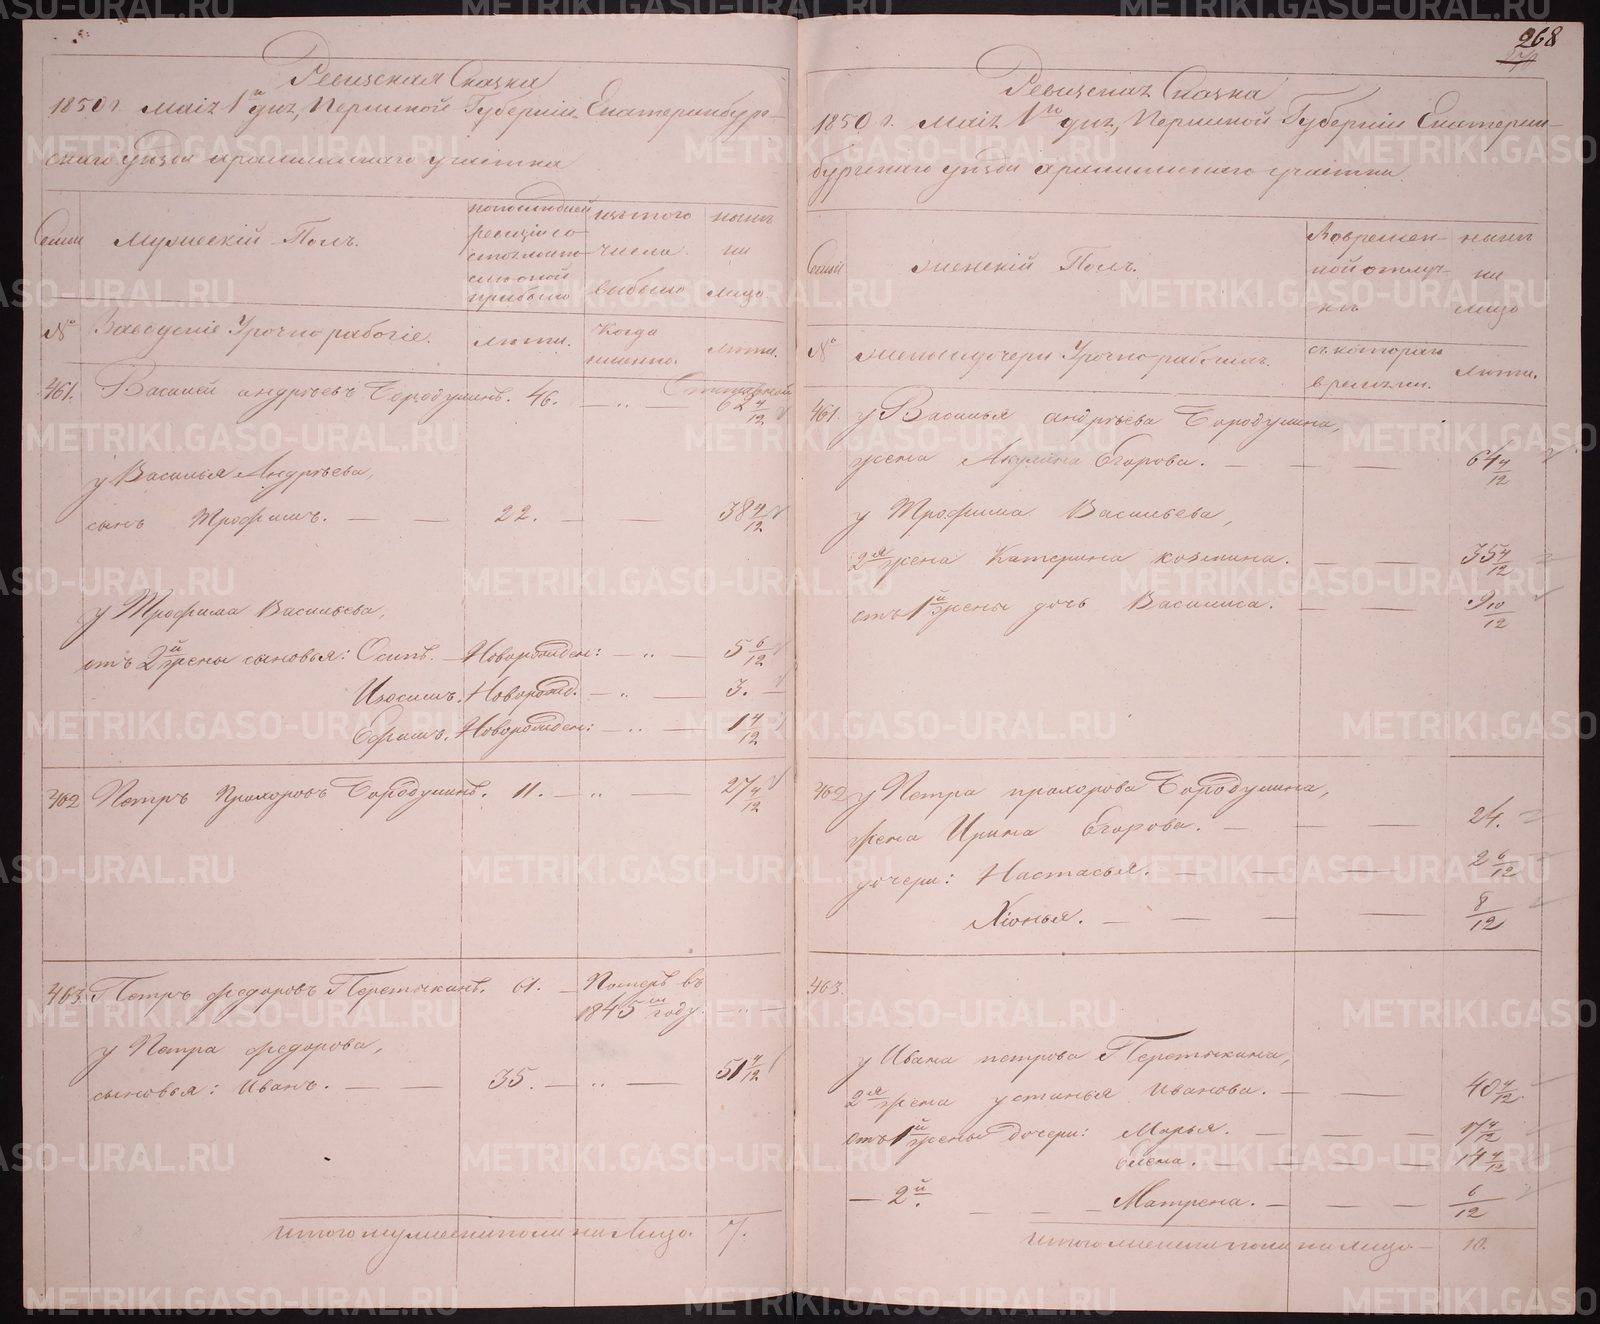 Ревизская Сказка
1850 г. маія 1го дня, Пермской Губерніи Екатеринбур-
скаго уѣзда арамильскаго участка
Семьи
Мужескій Полъ.
по последней
ревизіи со-
стояло и по-
сле оной
прибыло
изъ того
числа
выбыло
нынѣ
на
лицо
№
Заводскіе Урочно рабочіе.
лѣта.
Когда
именно.
лѣта.
461. Василей андрѣевъ Бородулинъ. 46. — „ — Отставной 62 4/12
у Василья Андрѣева,
сынъ Трофимъ. — — 22. — — 38 4/12
у Трофима Васильева,
отъ 2й жены сыновья: Осипъ. — Новорожден: — „ — 5 6/12
Изосимъ. Новорожд. — „ — 3. —
Ефимъ. Новорожден: — „ — 1 4/12
462 Петръ Прохоровъ Бородулинъ. 11. — „ — 27 4/12
463. Петръ федоровъ Перетыкинъ. 61. — Померъ въ
1845м году. — „ —
у Петра федорова,
сыновья: Иванъ. — — 35. — „ — 51 4/12
итого мужеска пола на Лицо. 7.
268
Ревизская Сказка
1850 г. маія 1го дня, Пермской Губерніи Екатерин-
бургскаго уѣзда арамильскаго участка.
Семьи
женскій Полъ.
Во времен-
ной отлуч-
кѣ
нынѣ
на
лицо
№
жены и дочери Урочно рабочихъ.
съ котораго
времени.
лѣта.
461. у Василья андрѣева Бородулина,
жена Акулина Егорова. — — — 61 4/12
у Трофима Васильева,
2я жена Катерина козмина. — — 35 4/12
отъ 1й жены дочь Василиса. — — 9 10/12
462 у Петра прохорова Бородулина,
жена Ирина Егорова. — — — 24.
дочери: Настасья. — — — 2 6/12
Хіонья. — — — — 8/12
463.
у Ивана петрова Перетыкина,
2я жена устинья иванова. — — 40 4/12
отъ 1й жены дочери: Марья. — — — 17 4/12
Елена. — — — — 14 4/12
— 2й. — — — Матрена. — — — 6/12
итого женска пола на лицо — 10.
METRIKI.GASO-URAL.RU